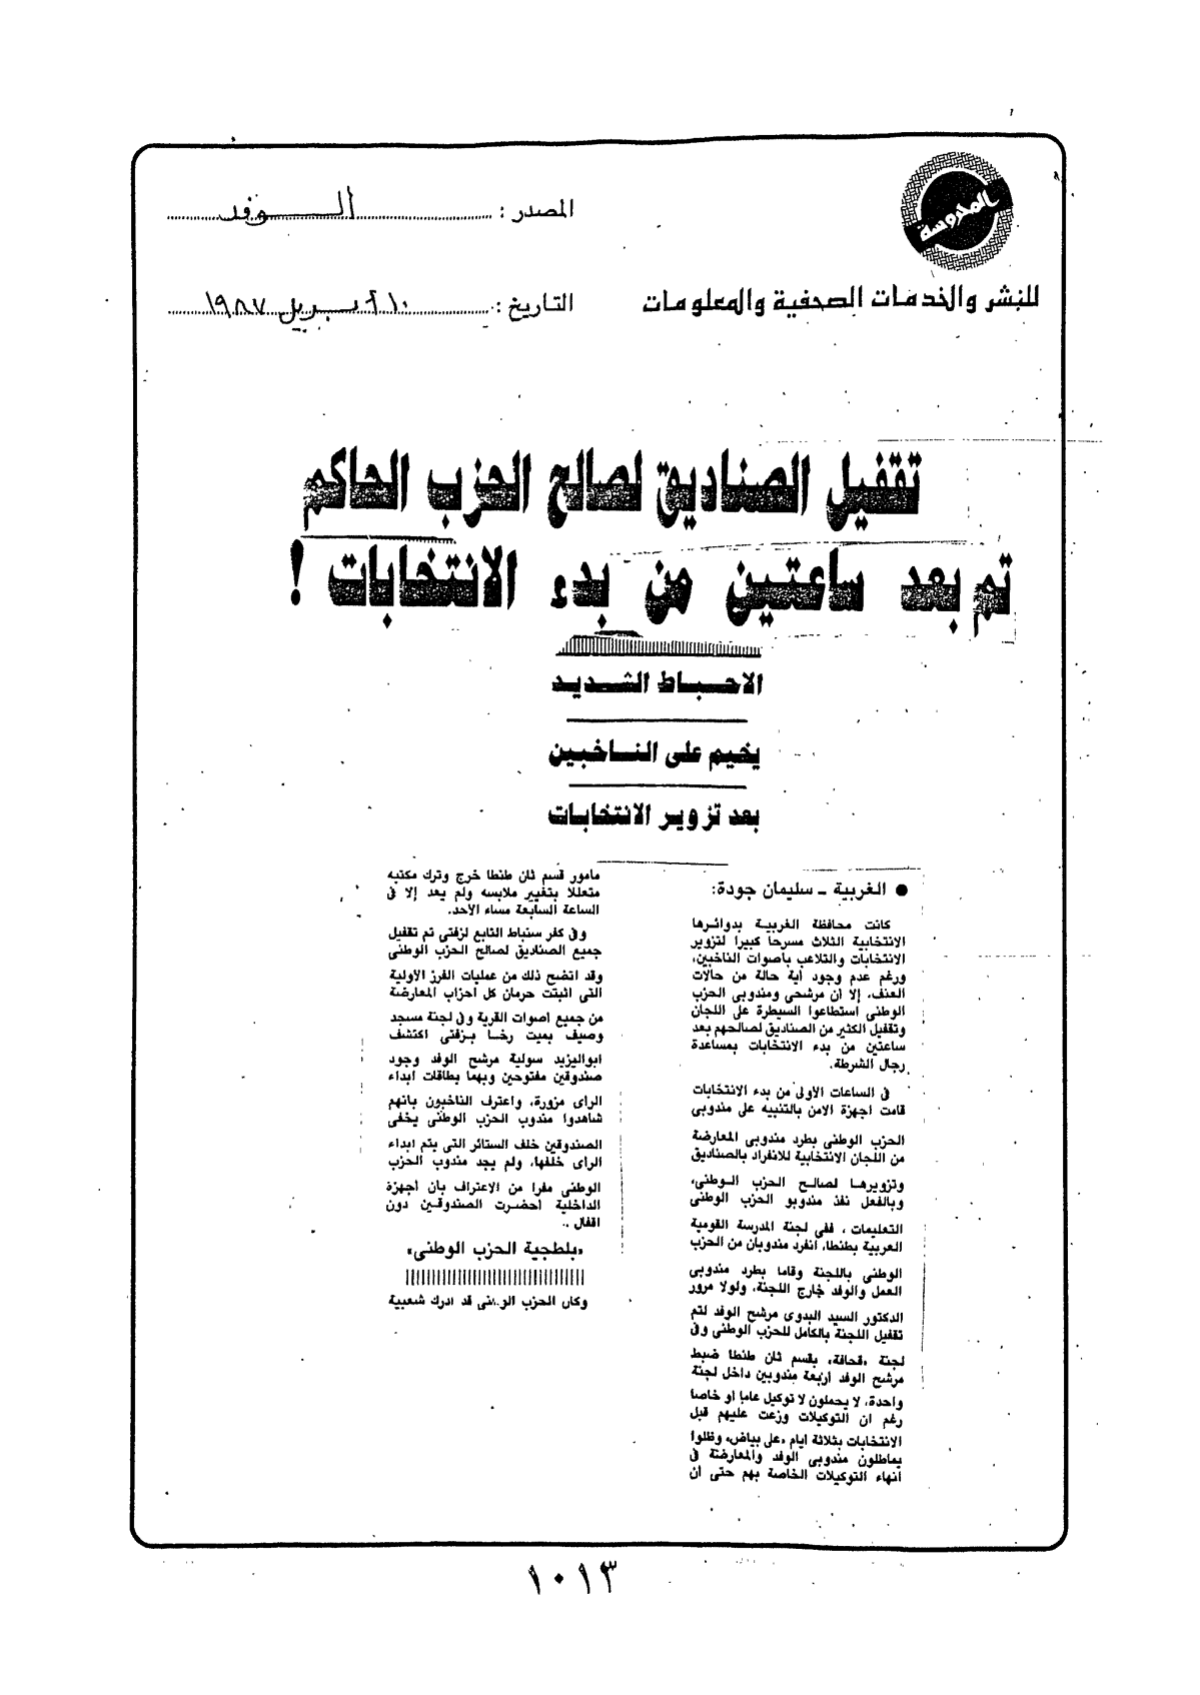 المحروسة
للنشر والخدمات الصحفية والمعلومات
المصدر : الوفد
التاريخ : ١٠ أبريل ١٩٨٧
تقفيل الصناديق لصالح الحزب الحاكم
تم بعد ساعتين من بدء الانتخابات !
الاحباط الشديد
يخيم على الناخبين
بعد تزوير الانتخابات
● الغربية ـ سليمان جودة:
كانت محافظة الغربية بدوائرها
الانتخابية الثلاث مسرحا كبيرا لتزوير
الانتخابات والتلاعب بأصوات الناخبين،
ورغم عدم وجود أية حالة من حالات
العنف، إلا أن مرشحى ومندوبى الحزب
الوطنى استطاعوا السيطرة على اللجان
وتقفيل الكثير من الصناديق لصالحهم بعد
ساعتين من بدء الانتخابات بمساعدة
رجال الشرطة.
فى الساعات الأولى من بدء الانتخابات
قامت اجهزة الامن بالتنبيه على مندوبى
الحزب الوطنى بطرد مندوبى المعارضة
من اللجان الانتخابية للانفراد بالصناديق
وتزويرها لصالح الحزب الوطنى،
وبالفعل نفذ مندوبو الحزب الوطنى
التعليمات ، ففى لجنة المدرسة القومية
العربية بطنطا، انفرد مندوبان من الحزب
الوطنى باللجنة وقاما بطرد مندوبى
العمل والوفد خارج اللجنة، ولولا مرور
الدكتور السيد البدوى مرشح الوفد لتم
تقفيل اللجنة بالكامل للحزب الوطنى وفى
لجنة «قحافة» بقسم ثان طنطا ضبط
مرشح الوفد أربعة مندوبين داخل لجنة
واحدة، لا يحملون لا توكيل عاما او خاصا
رغم ان التوكيلات وزعت عليهم قبل
الانتخابات بثلاثة ايام «على بياض» وظلوا
يماطلون مندوبى الوفد والمعارضة فى
انهاء التوكيلات الخاصة بهم حتى ان
مامور قسم ثان طنطا خرج وترك مكتبه
متعللا بتغيير ملابسه ولم يعد إلا فى
الساعة السابعة مساء الاحد.
وفى كفر سنباط التابع لزفتى تم تقفيل
جميع الصناديق لصالح الحزب الوطنى
وقد اتضح ذلك من عمليات الفرز الاولية
التى اثبتت حرمان كل احزاب المعارضة
من جميع اصوات القرية وفى لجنة مسجد
وصيف بميت رخا بزفتى اكتشف
ابواليزيد سولية مرشح الوفد وجود
صندوقين مفتوحين وبهما بطاقات ابداء
الراى مزورة، واعترف الناخبون بانهم
شاهدوا مندوب الحزب الوطنى يخفى
الصندوقين خلف الستائر التى يتم ابداء
الراى خلفها، ولم يجد مندوب الحزب
الوطنى مفرا من الاعتراف بأن أجهزة
الداخلية أحضرت الصندوقين دون
اقفال ..
«بلطجية الحزب الوطنى»
وكان الحزب الوطنى قد ادرك شعبية
١٠١٣